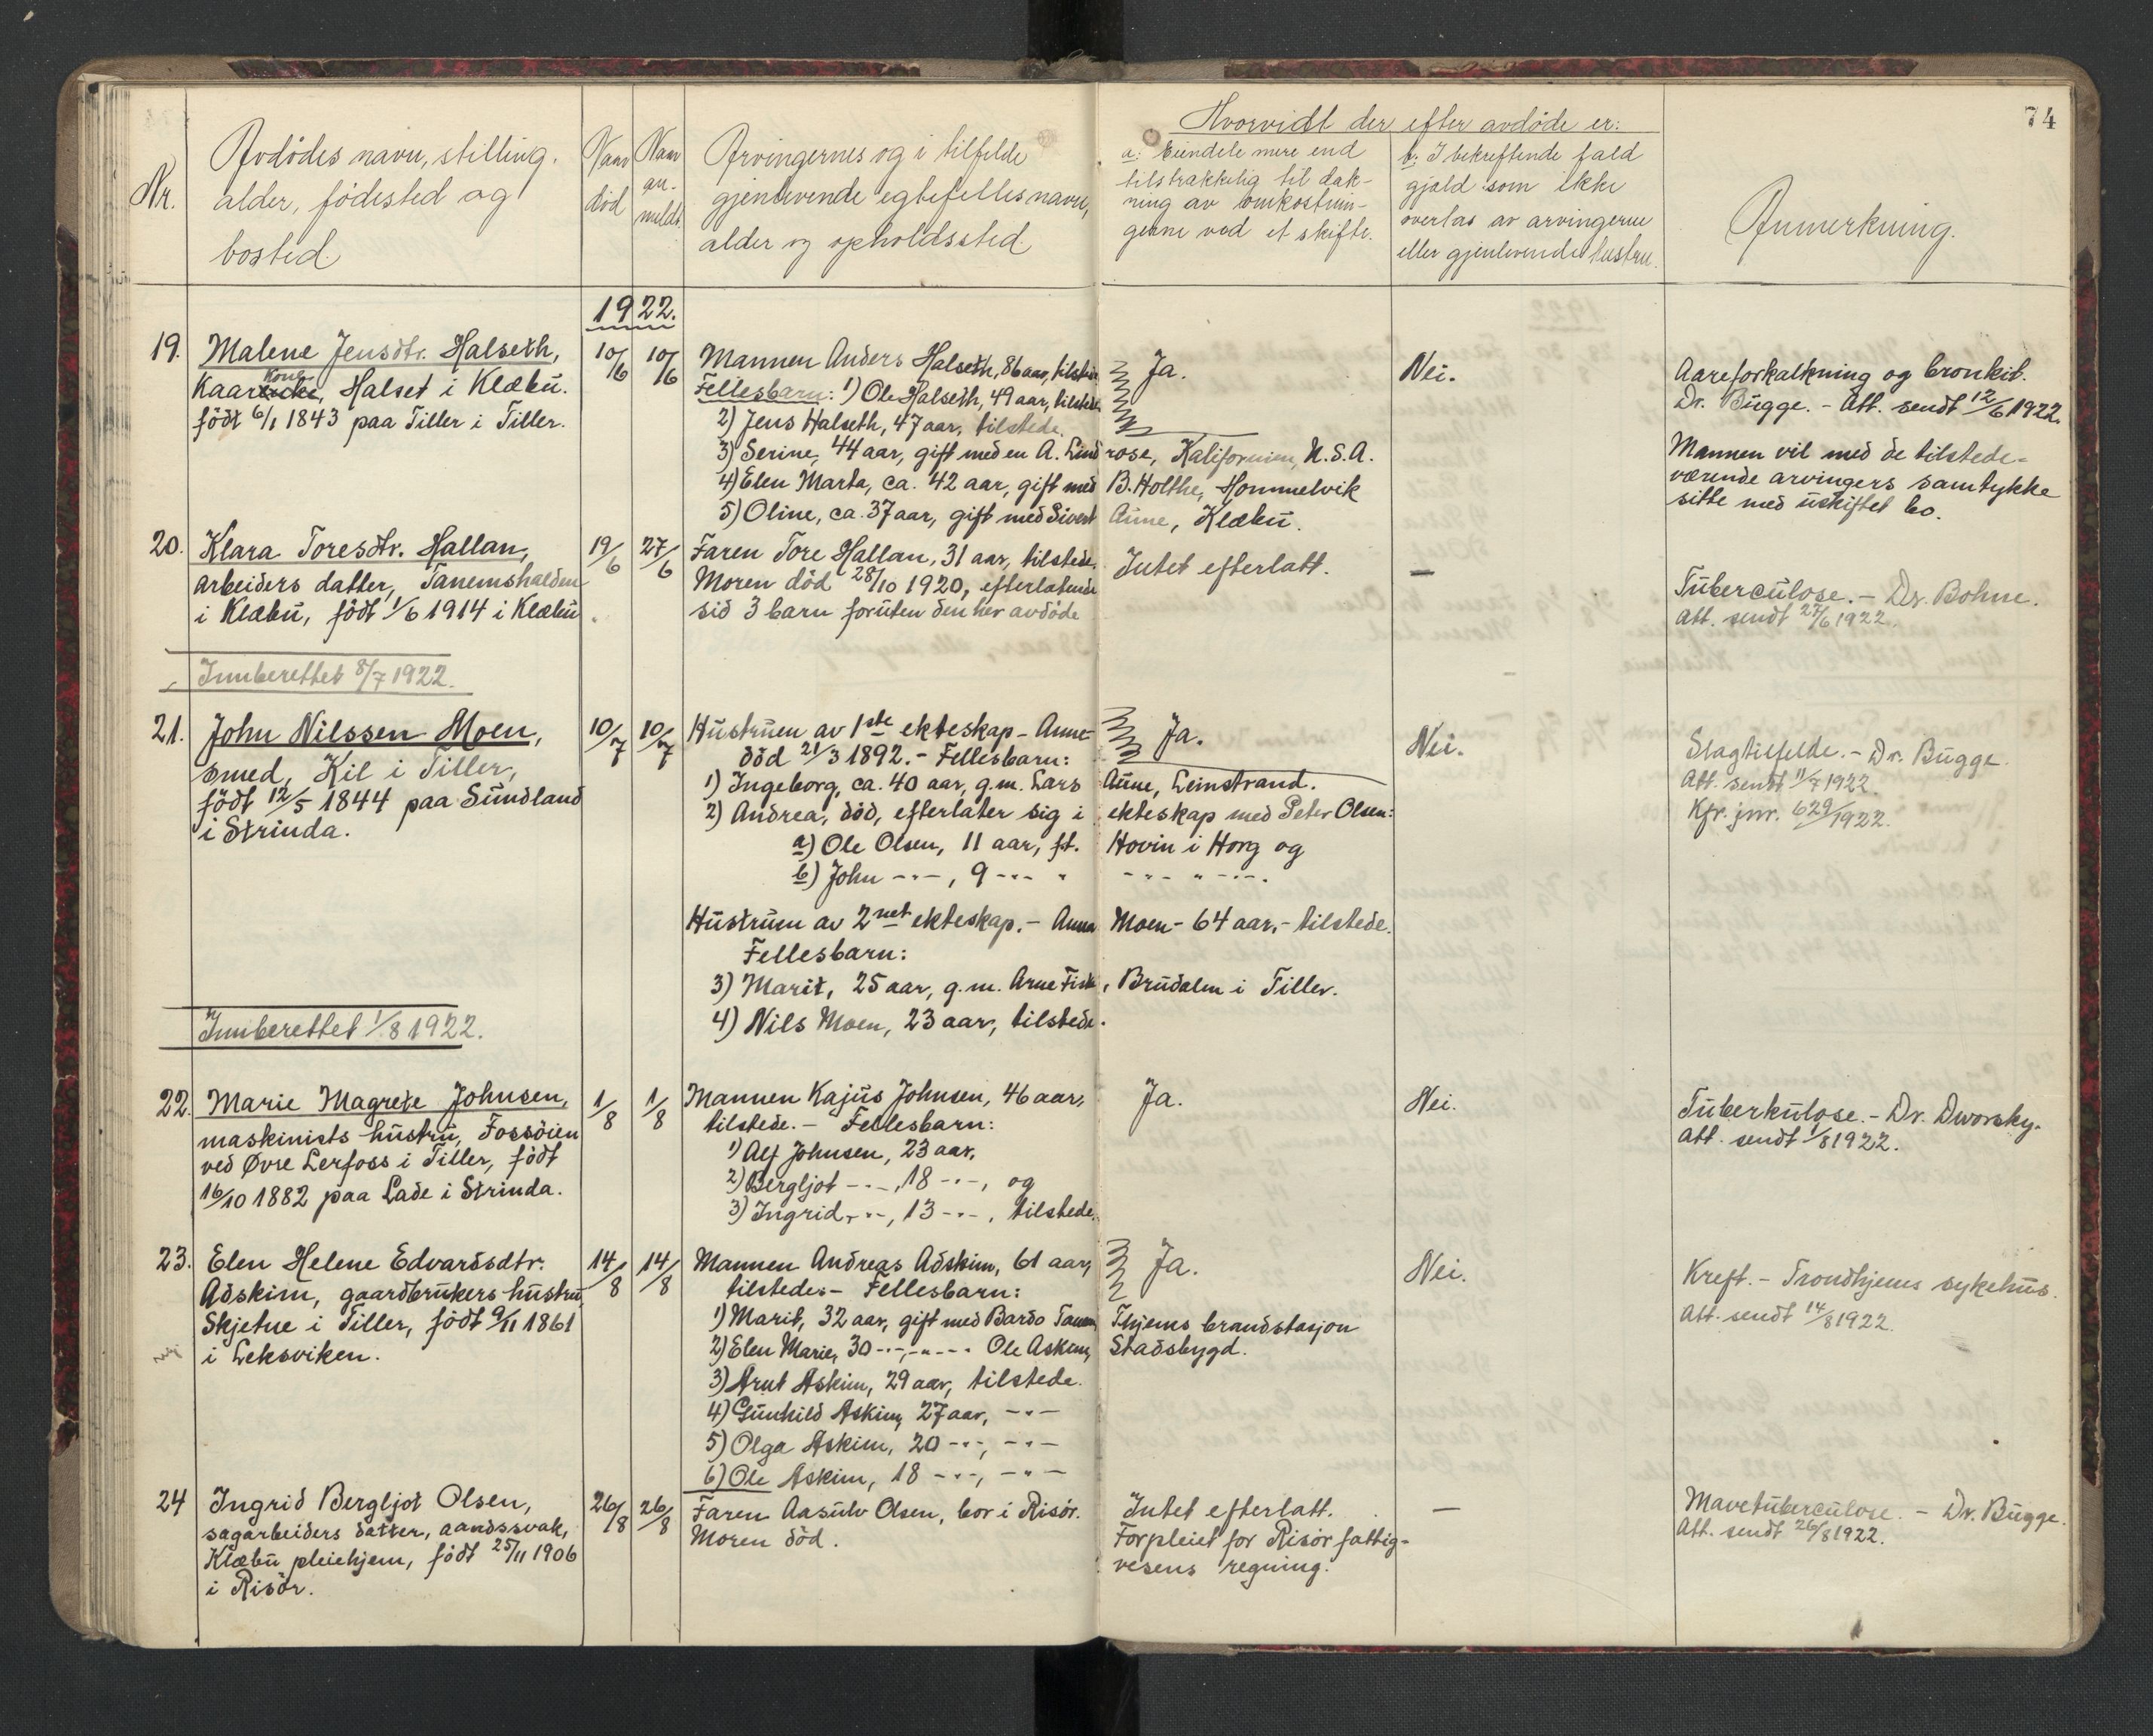 74
Nr.
Avdödes navn, stilling.
alder, födested og
bosted.
Naar
död
Naar
an-
meldt.
Arvingernes og i tilfelde
gjenlevende egtefelles navn,
alder og opholdssted
Hvorvidt der efter avdöde er:
a: Eiendele mere end
tilstrækkelig til dæk-
ning av omkostnin-
gerne ved et skifte.
b: I bekreftende fald
gjæld som ikke
overtas av arvingerne
eller gjenlevende hustru.
Anmerkning.
1922.
19.
Malene Jensdtr. Halseth,
Kone
Kaarenke, Halset i Klæbu.
födt 6/1 1843 paa Tiller i Tiller.
10/6
10/6
Mannen Anders Halseth, 86 aar, tilstede
Fellesbarn: 1) Ole Halseth, 49 aar, tilstede
2) Jens Halseth, 47 aar, tilstede.
3) Serine, 44 aar, gift med en A. Lindrose, Kalifornien, U.S.A.
4) Elen Marta, ca. 42 aar, gift med B. Holthe, Hommelvik
5) Oline, ca. 37 aar, gift med Sivert Aune, Klæbu.
Ja.
Nei.
Aareforkalkning og bronkit.
Dr. Bugge. - Att. sendt 12/6 1922.
Mannen vil med de tilstede-
værende arvingers samtykke
sitte med uskiftet bo.
20.
Klara Toresdtr. Hallan,
arbeiders datter, Tanemshalden
i Klæbu, födt 1/6 1914 i Klæbu.
19/6
27/6
Faren Tore Hallan, 31 aar, tilstede.
Moren död 28/10 1920, efterlatende
sid 3 barn foruten den her avdöde
Intet efterlatt.
—
Tuberculose. - Dr. Bohne.
Att. sendt 27/6 1922.
Innberettet 8/7 1922.
21.
John Nilssen Moen,
smed, Kil i Tiller,
födt 12/5 1844 paa Sundland
i Strinda.
10/7
10/7
Hustruen av 1ste ekteskap - Anne -
död 21/3 1892. - Fellesbarn:
1) Ingeborg, ca. 40 aar, g.m. Lars Aune, Leinstrand.
2) Andrea, död, efterlater sig i ekteskap med Peter Olsen:
a) Ole Olsen, 11 aar, ft. Hovin i Horg og
b) John -"-, 9 -"- " -"- " -"-.
Hustruen av 2net ekteskap. - Anna Moen - 64 aar, - tilstede.
Fellesbarn:
3) Marit, 25 aar, g.m. Arne Fisk, Brudalen i Tiller.
4) Nils Moen, 23 aar, tilstede.
Ja.
Nei.
Slagtilfelde. - Dr. Bugge.
Att. sendt 11/7 1922.
Kfr. jnr. 629/1922.
Innberettet 1/8 1922.
22.
Marie Magrete Johnsen,
maskinists hustru, Fossöien
ved Øvre Lerfoss i Tiller, födt
16/10 1882 paa Lade i Strinda.
1/8
1/8
Mannen Kajus Johnsen, 46 aar,
tilstede. - Fellesbarn:
1) Alf Johnsen, 23 aar,
2) Bergljot -"-, 18 -"-, og
3) Ingrid -"-, 13 -"-, tilstede.
Ja.
Nei.
Tuberkulose. - Dr. Dworsky.
Att. sendt 1/8 1922.
23.
Elen Helene Edvardsdtr.
Adskim, gaardbrukers hustru,
Skjetne i Tiller, födt 9/11 1861
i Leksviken.
14/8
14/8
Mannen Andreas Adskim, 61 aar,
tilstede. - Fellesbarn:
1) Marit, 32 aar, gift med Bardo Tanem, Thjems brandstasjon
2) Elen Marie, 30 -"-, -"- -"- Ole Askim, Stadsbygd.
3) Arnt Askim, 29 aar, tilstede.
4) Gunhild Askim, 27 aar, -"-
5) Olga Askim, 20 -"-, -"-
6) Ole Askim, 18 -"-, -"-
Ja.
Nei.
Kreft. - Trondhjems sykehus.
Att. sendt 14/8 1922.
24
Ingrid Bergljot Olsen,
sagarbeiders datter, aandssvak,
Klæbu pleiehjem, födt 25/11 1906
i Risör.
26/8
26/8
Faren Aasulv Olsen, bor i Risör.
Moren död.
Intet efterlatt.
Forpleiet for Risör fattig-
vesens regning.
—
Mavetuberculose. - Dr. Bugge.
Att. sendt 26/8 1922.